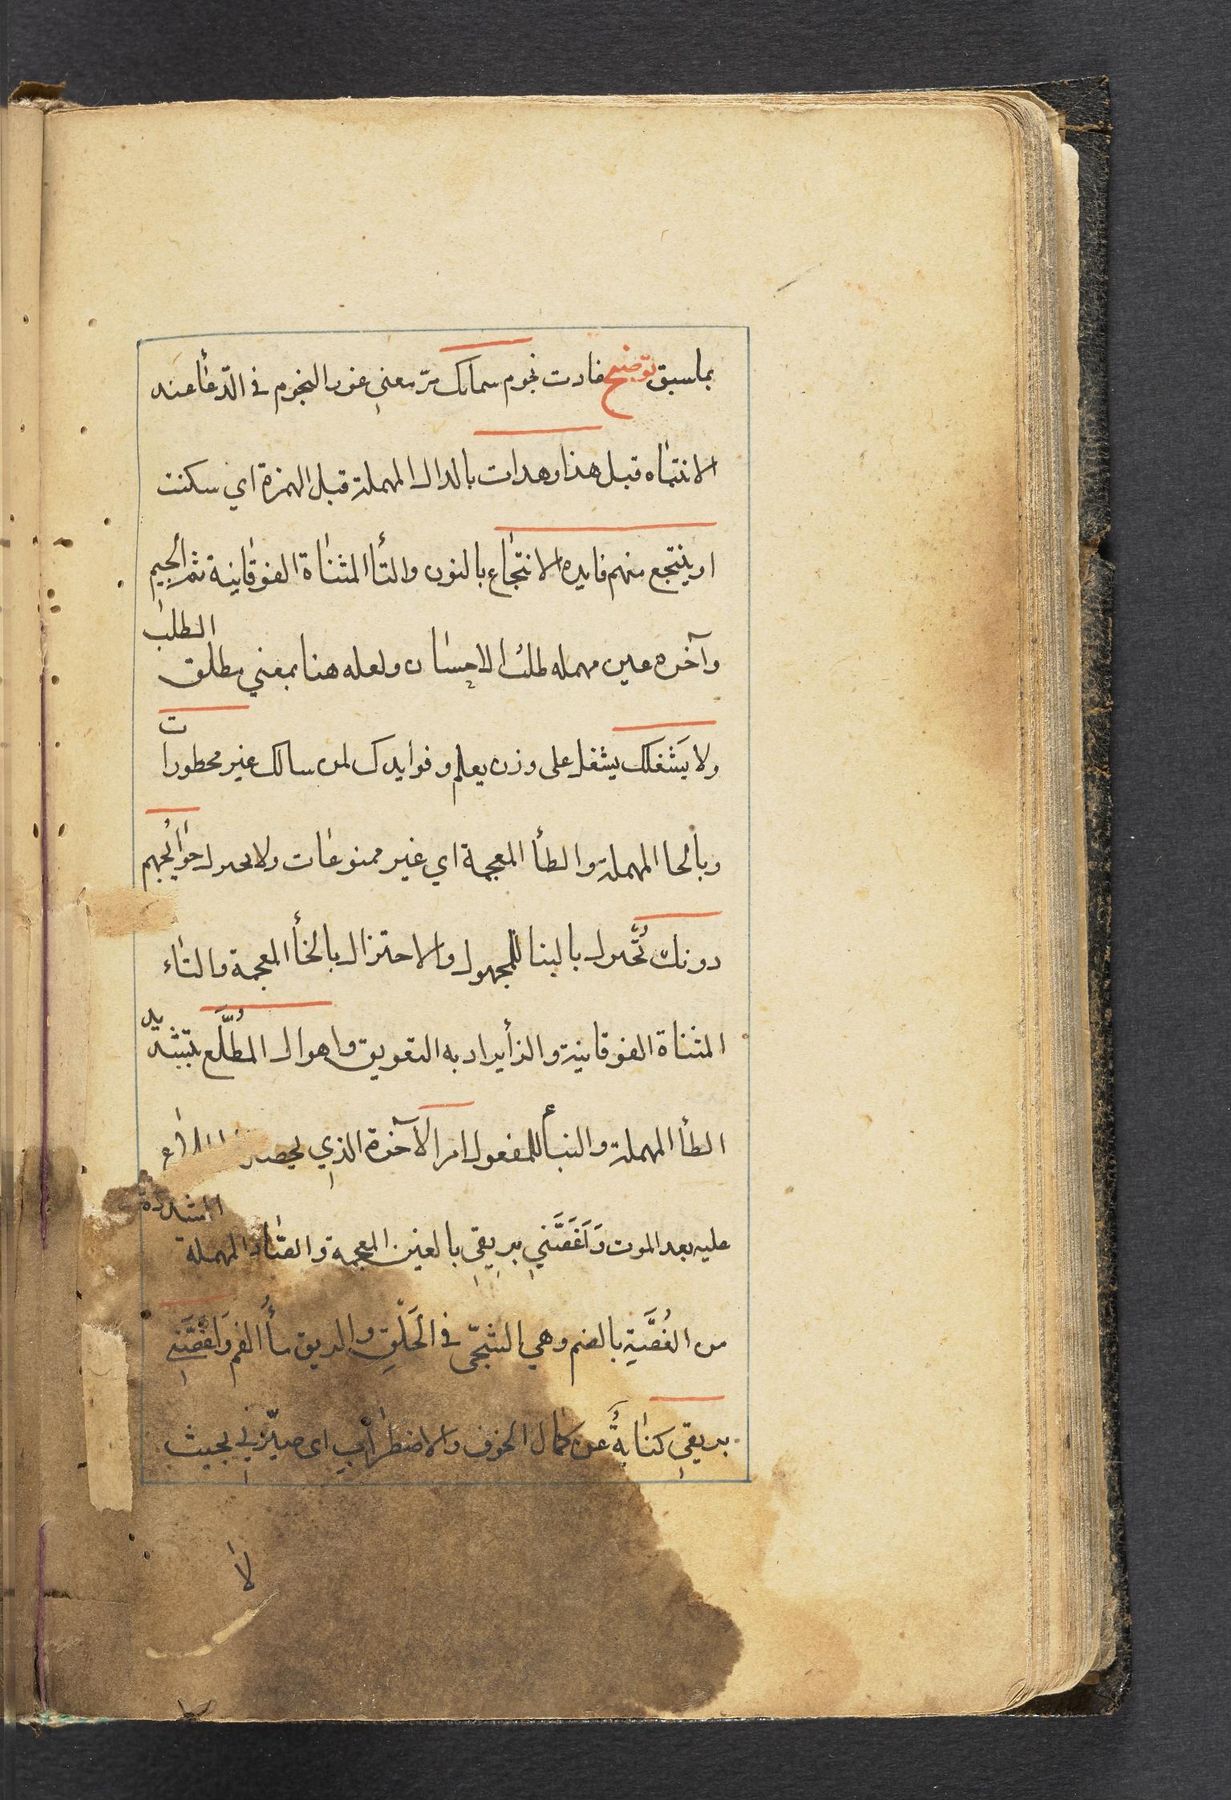 بما سبق توضيح غارت نجوم سمائك مرّ معني غور النجوم في الدّعأ عند
الانتباه قبل هذا وهدات بالدال المهملة قبل الهمزة اي سكنت
او ينتجع منهم فايده الانتجاع بالنون والتأ المثناة الفوقانية ثم الجيم
وآخره عين مهمله طلب الاحسان ولعله هنا بمعني مطلق الطلب
ولا يَشْغلك يشغل علي وزن يعلم وفوايدك لمن سالك غير محظورات
وبالحا المهملة والظأ المعجمة اي غير ممنوعات ولا تختزل حوائجهم
دونك تُختزل بالبنا للمجهول والاختزال بالخأ المعجمة والتاء
المثناة الفوقانية والزأ يراد به التعويق واهوال المطُّلَّع بتشديد
الطأ المهملة والبنأ للمفعول امر الآخرة الذي يحصل الاطلاع
عليه بعد الموت وَاَغَصَّني بريقي بالغين المعجمة والصّاد المهملة المشددة
من الغُصَّةِ بالضم وهي الشجّى في الحَلْقِ والريق مأُ الفم وَاَغَصَّني
بريقي كنايةٌ عن كمال الخوف والاضطرابِ اي صيّرني بحيث
لا